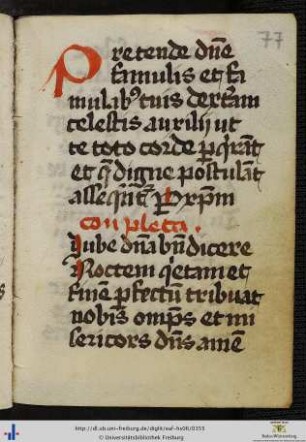 77
Pretende dn̄e
famulis et fa
mulabꝰ tuis dextram
celestis auxilij ut
te toto corde ꝑq̄rāt
et q̄ digne postulāt
asseqūt̄ Ꝑ xp̄m
conpleta.
Iube dn̄a bn̄ dicere
Noctem q'etam et
finē ꝑfectū tribuat
nobis omp̄s et mi
sericors dn̄s amē
http://dl.ub.uni-freiburg.de/diglit/
© Universitätsbibliothek Freiburg
Baden-Württemberg